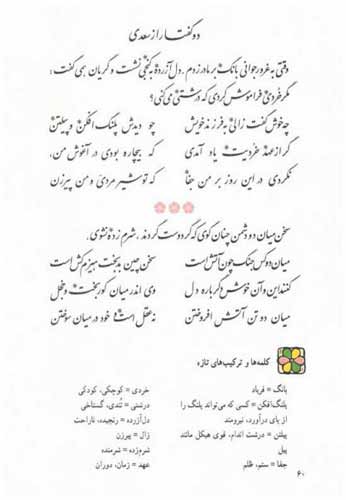 دو گفتار از سعدی
وقتی به غرور جوانی بانگ بر مادر زدم. دل آزرده به کنجی نشست و گریان همی گفت:
مگر خردی فراموش کردی که درشتی می‌کنی؟
چه خوش گفت زالی به فرزند خویش چو دیدش پلنگ افکن و پیلتن
گر از عهد خردیت یاد آمدی که بیچاره بودی در آغوش من،
نکردی در این روز بر من جفا که تو شیر مردی و من پیرزن
سخن میان دو دشمن چنان گوی که گر دوست گردند، شرم زده نشوی.
میان دو کس جنگ چون آتش است سخن چین بدبخت هیزم کش است
کنند این و آن خوش دگر باره دل وی اندر میان کوربخت و خجل
میان دو تن آتش افروختن نه عقل است خود در میان سوختن
کلمه‌ها و ترکیب‌های تازه
بانگ = فریاد خردی = کوچکی، کودکی
پلنگ‌افکن = کسی که می‌تواند پلنگ را درشتی = تُندی، گستاخی
از پای درآورد، نیرومند دل‌آزرده = رنجیده، ناراحت
پیلتن = درشت اندام، قوی هیکل مانند زال = پیرزن
پیل شرم‌زده = شرمنده
جفا = ستم، ظلم عهد = زمان، دوران
۶۰